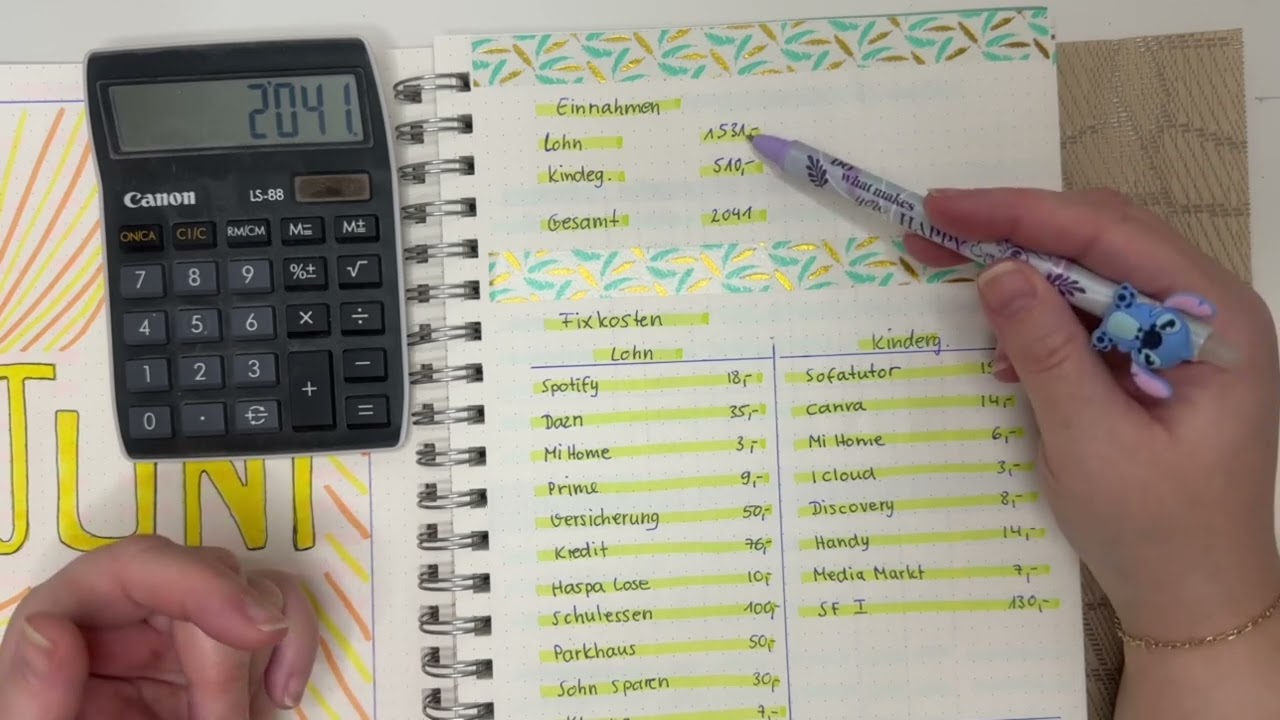 2041.
Canon
LS-88
ON/CA CI/C RM/CM M= M±
7 8 9 %± √
4 5 6 × ÷
1 2 3 + −
0 . =
JUNI
Einnahmen
Lohn 1531,-
Kindeg. 510,-
Gesamt 2041
DO what makes you HAPPY
Fixkosten
Lohn
Spotify 18,-
Dazn 35,-
Mi Home 3,-
Prime 9,-
Versicherung 50,-
Kredit 76,-
Haspa Lose 10,-
Schulessen 100,-
Parkhaus 50,-
Sohn sparen 30,-
7,-
Kinderg.
Sofatutor
Canva 14,-
Mi Home 6,-
I Cloud 3,-
Discovery 8,-
Handy 14,-
Media Markt 7,-
SF I 130,-